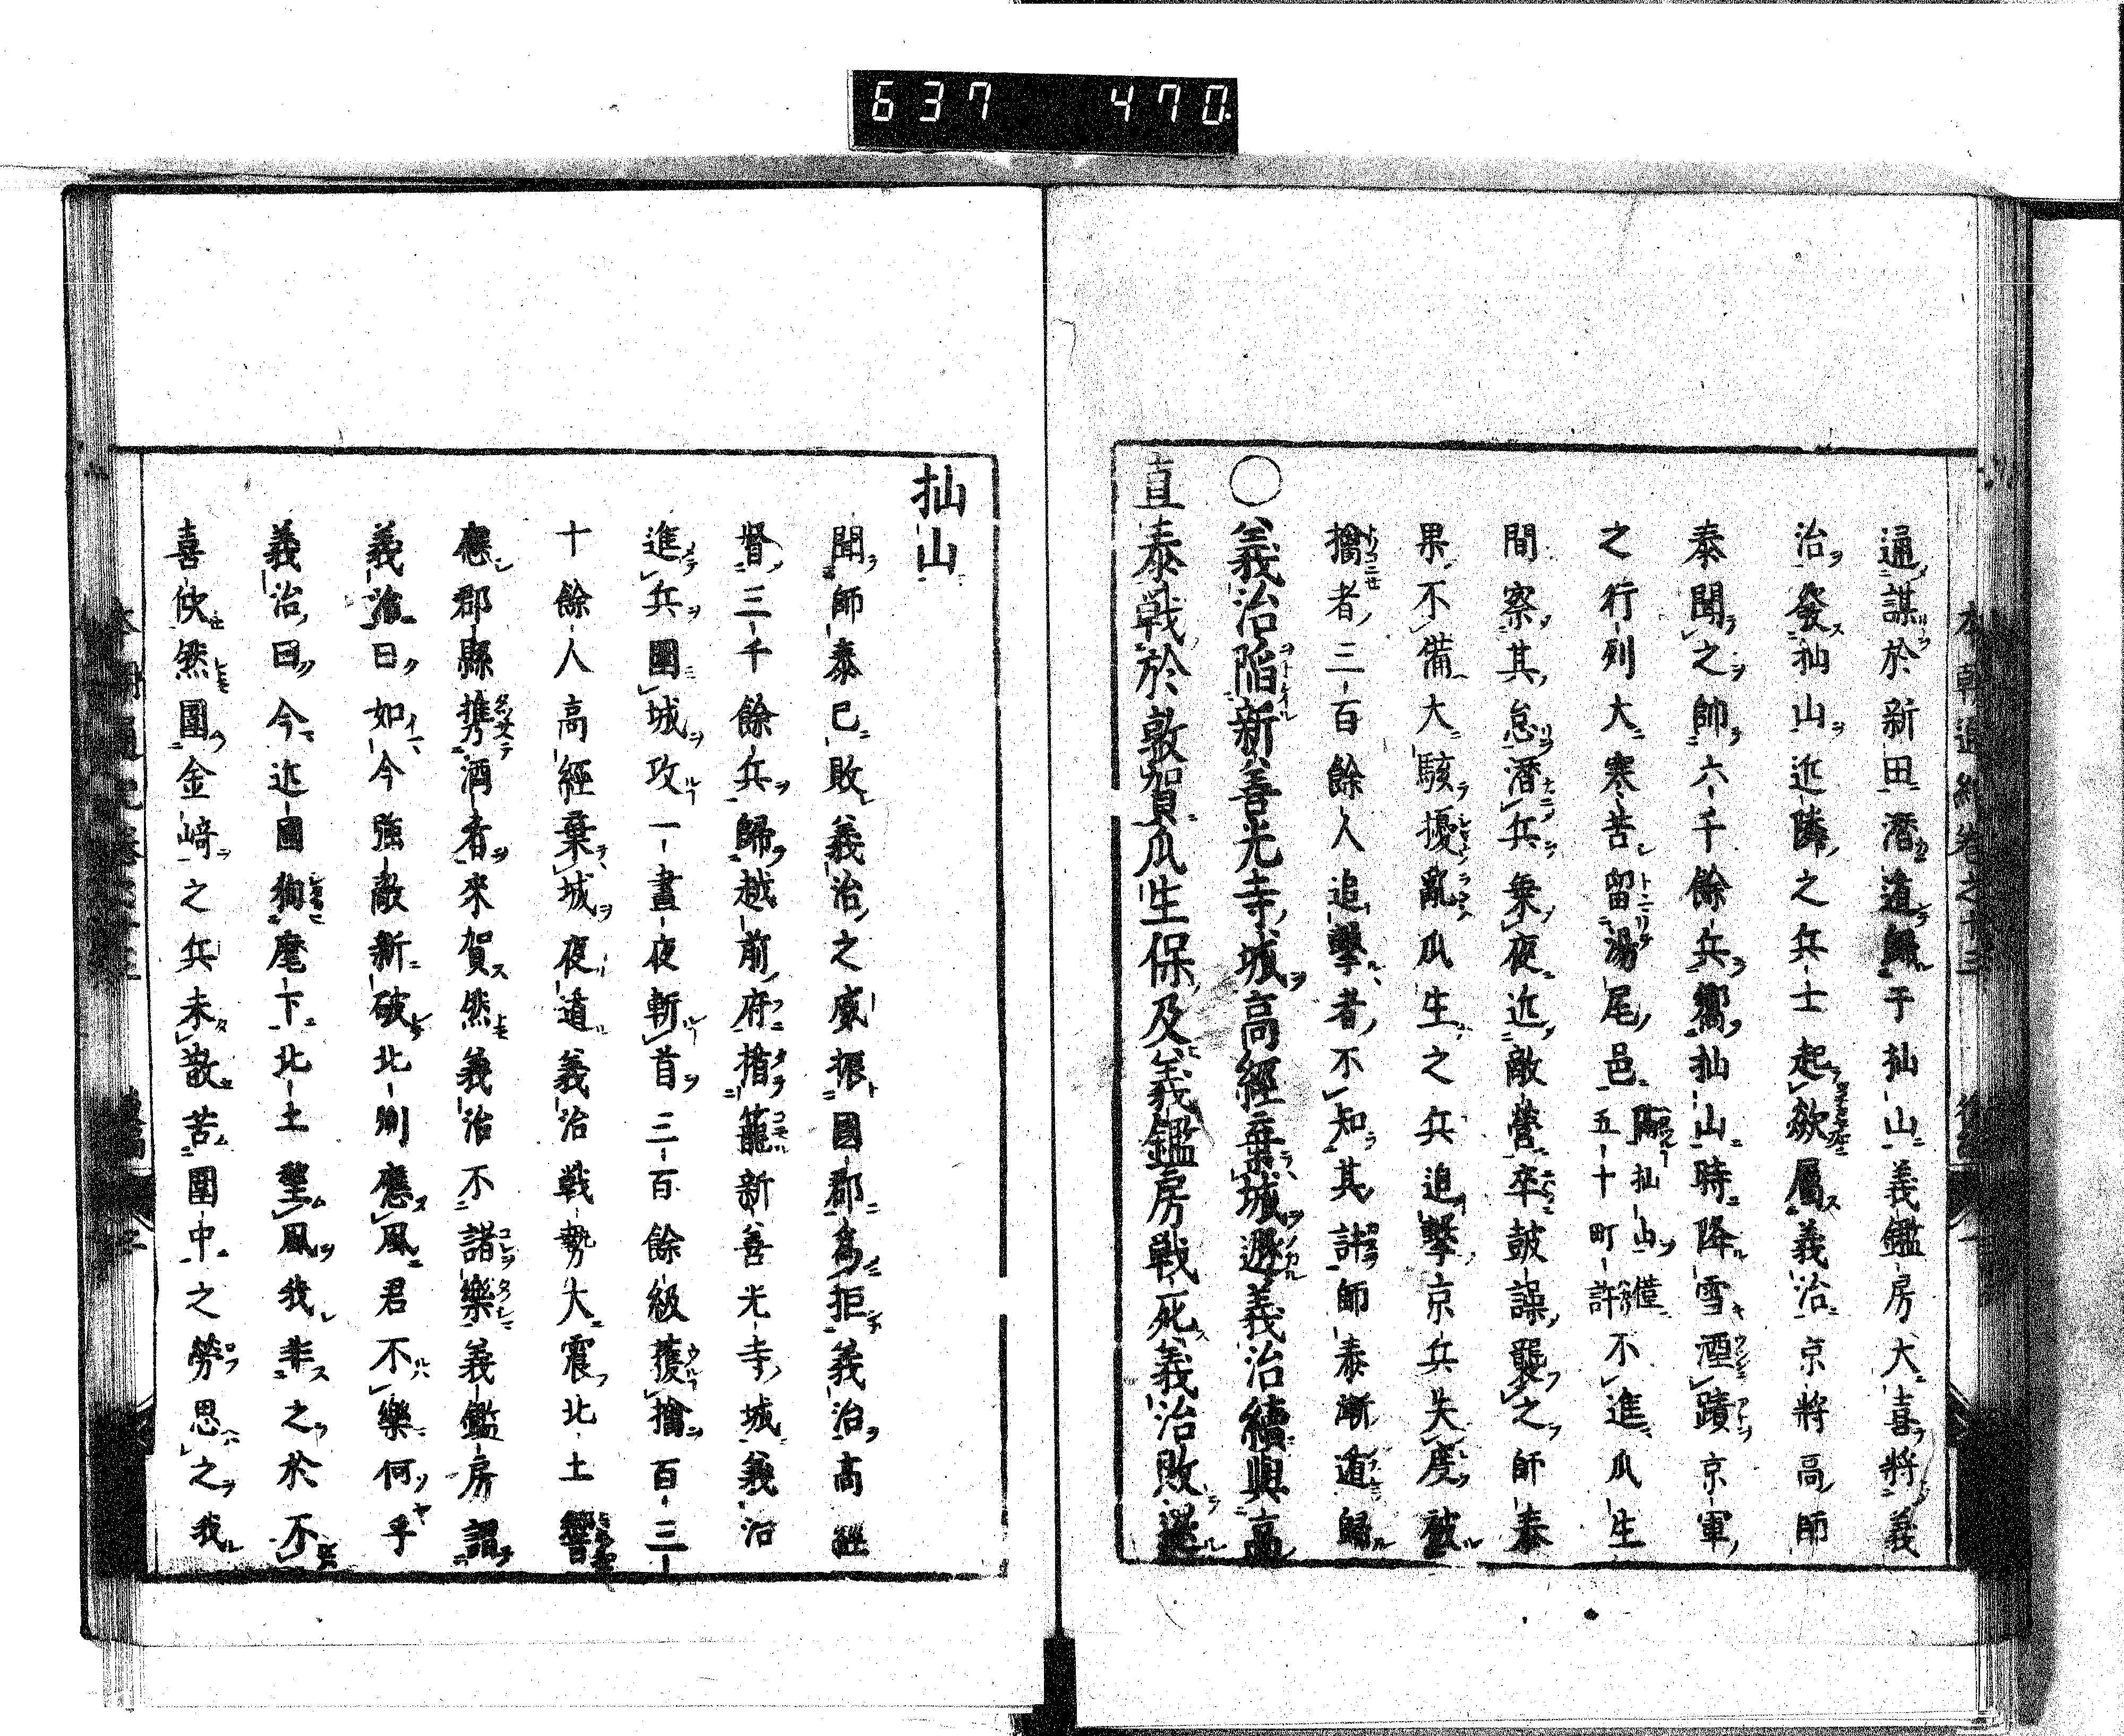 637 470
遍謀於新田潛遁歸于杣山義鑑房大喜將義
治發杣山近隣之兵士起欲屬義治京將高師
泰聞之帥六千餘兵嚮杣山時降雪湮蹟京軍
之行列大寒苦留湯尾邑隔杣山僅五十町許不進瓜生
間察其怠潛兵乘夜近敵營卒鼓譟襲之師泰
果不備大駭擾亂瓜生之兵追擊京兵失度被
擒者三百餘人追擊者不知其計師泰漸遁歸
○義治陷新善光寺城高經棄城遯義治續與高
直泰戰於敦賀瓜生保及義鑑房戰死義治敗還
杣山
聞師泰已敗義治之威振國郡為拒義治高經
督三千餘兵歸越前府楯籠新善光寺城義治
進兵圍城攻一晝夜斬首三百餘級獲擒百三
十餘人高經棄城夜遁義治戰勢大震北土響
應郡縣攜酒肴來賀然義治不諸樂義鑑房謂
義治曰如今強敵新破北則應風君不樂何乎
義治曰今近國徇麾下北土望風我非之於不
喜伏然圍金﨑之兵未散苦圍中之勞思之我